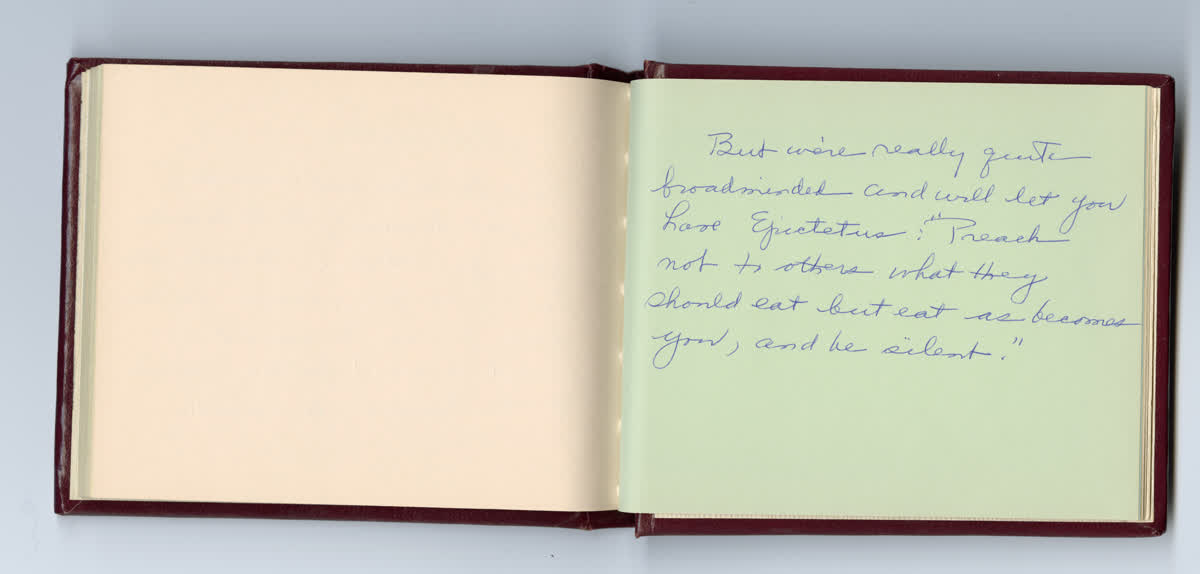 But we're really quite
broadminded and will let you
have Epictetus: "Preach
not to others what they
should eat but eat as becomes
you, and be silent."